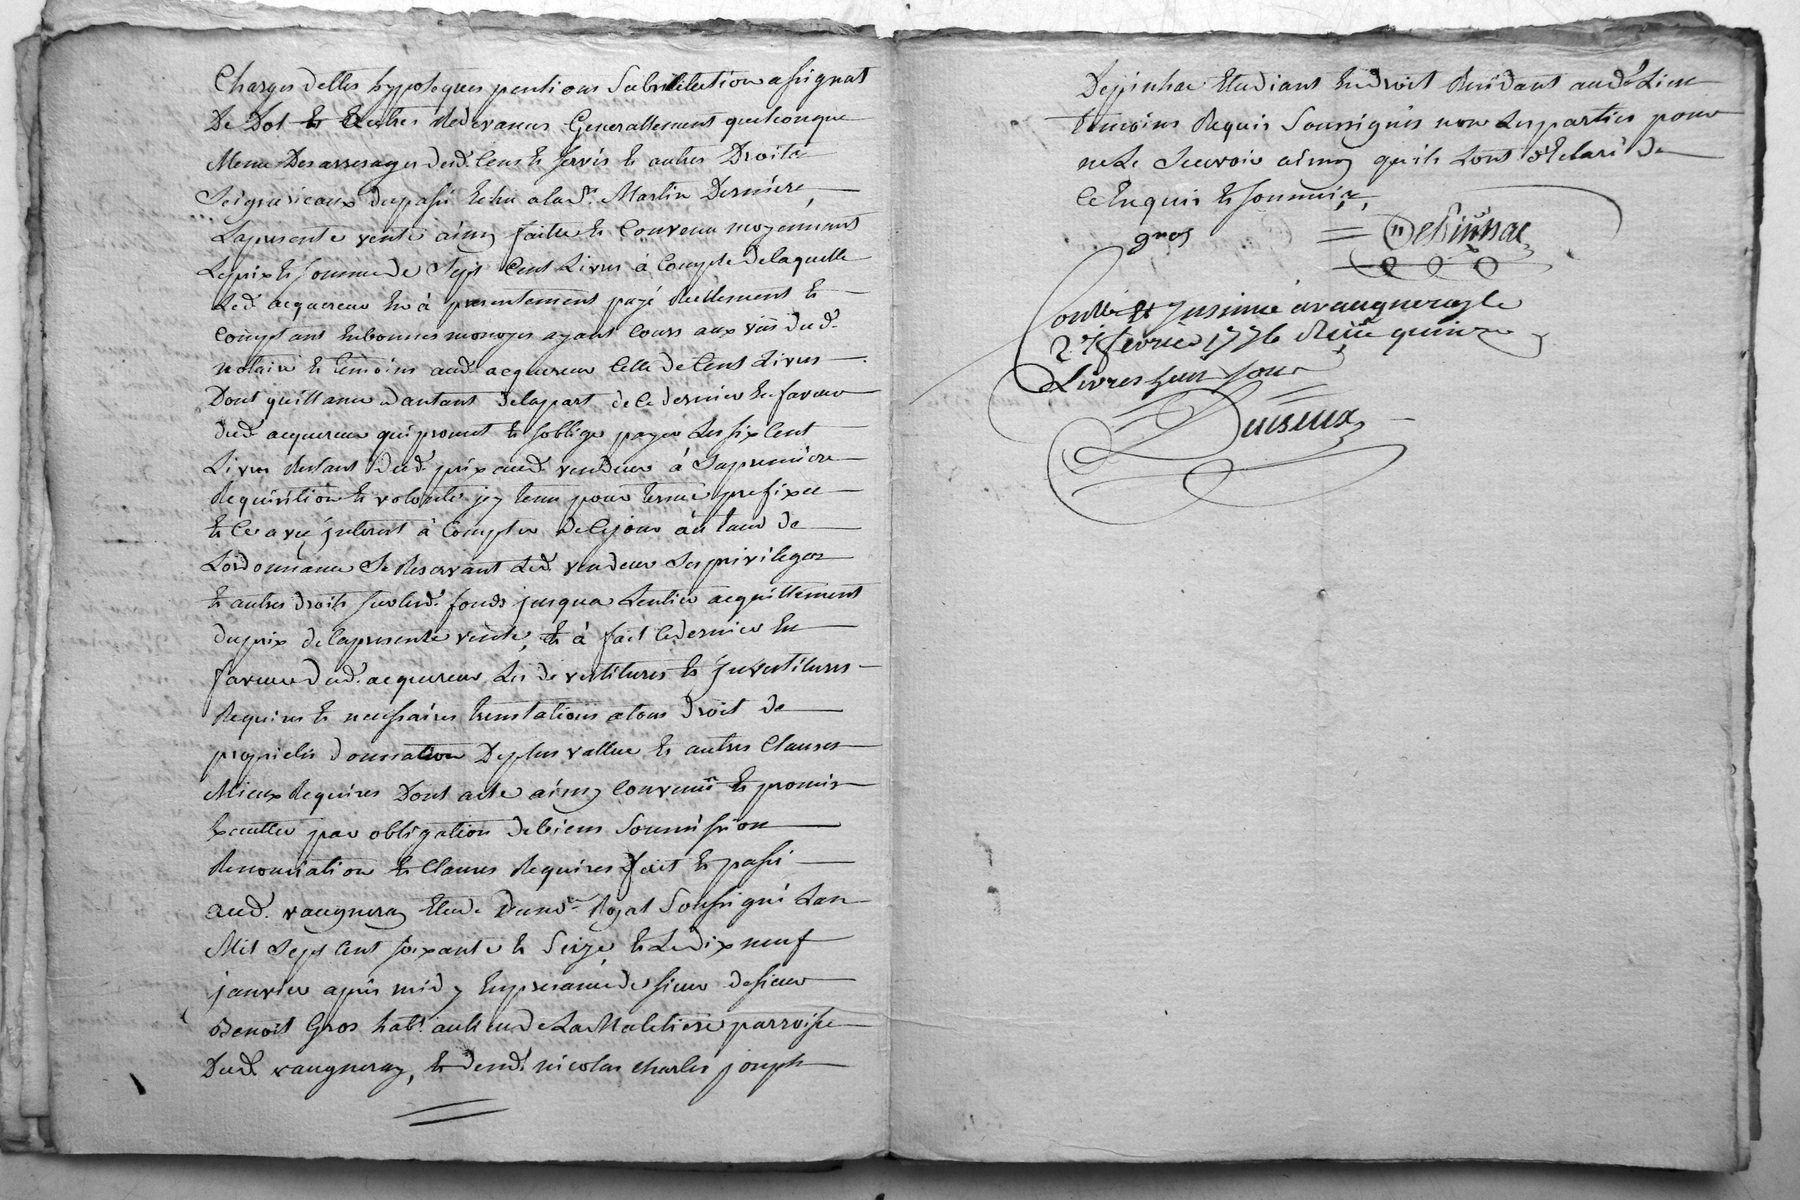 Charges dettes hypoteques pentions Substitution assignat
De Dot Et Autres Redevances Generallement quelconque
Meme Des arrerages dud. Cens & servis & autres Droits
Seigneuriaux du passé Echu a la St. Martin Derniere
La presente vente ainsy faitte & Convenu moyennant
Le prix & somme de Sept Cent Livres à Compte de laquelle
Led. acquereur En à presentement payé Reellement &
Comptant En bonnes monoyes ayant Cours aux vus dud.
notaire & temoins aud. acquereur Celle de Cent Livres
Dont quittance d'autant de la part de Ce dernier En faveur
dud. acquereur qui promet & soblige payer Les six Cent
Livres Restant dud. prix aud. vendeur à Sa premiere
Requisition & volonté jcy tenu pour terme prefixee
& Ce avec jnterest à Compter de Ce jour au taux de
Lordonnance Se Reservant Led. vendeur Ses privileges
& autres droits sur lesd. fonds jusqua Lentier acquittement
du prix de la presente vente, & à fait Ce dernier En
faveur dud. acquereur Les devestitures & Investitures
Requises & necessaires translations a tous droit de
proprieté donnation De plus vallue & autres Clauses
Mieux Requises Dont acte ainsy Convenu & promis
Executter par obligation de biens Soumission
Renonciation & Clauses Requises fait & passé
aud. vaugneray Etude Du Royal Soussigné Lan
Mil Sept Cent soixante & Seize & Le dix neuf
janvier après midy En presance de sieur
Benoit Gros habt. au lieu de La Maletiere parroisse
Dud. vaugneray, & de nicolas charles joseph
Depinhac Etudiant En droit Residant aud. Lieu
temoins Requis Soussignés non Les parties pour
ne Le Scavoir ainsy qu'ils Lont déclaré de
Ce Enquis & sommés
gros
Depinhac
Conllé & Insinué a vaugneray le
27 fevrier 1776 Reçu quinze
Livres